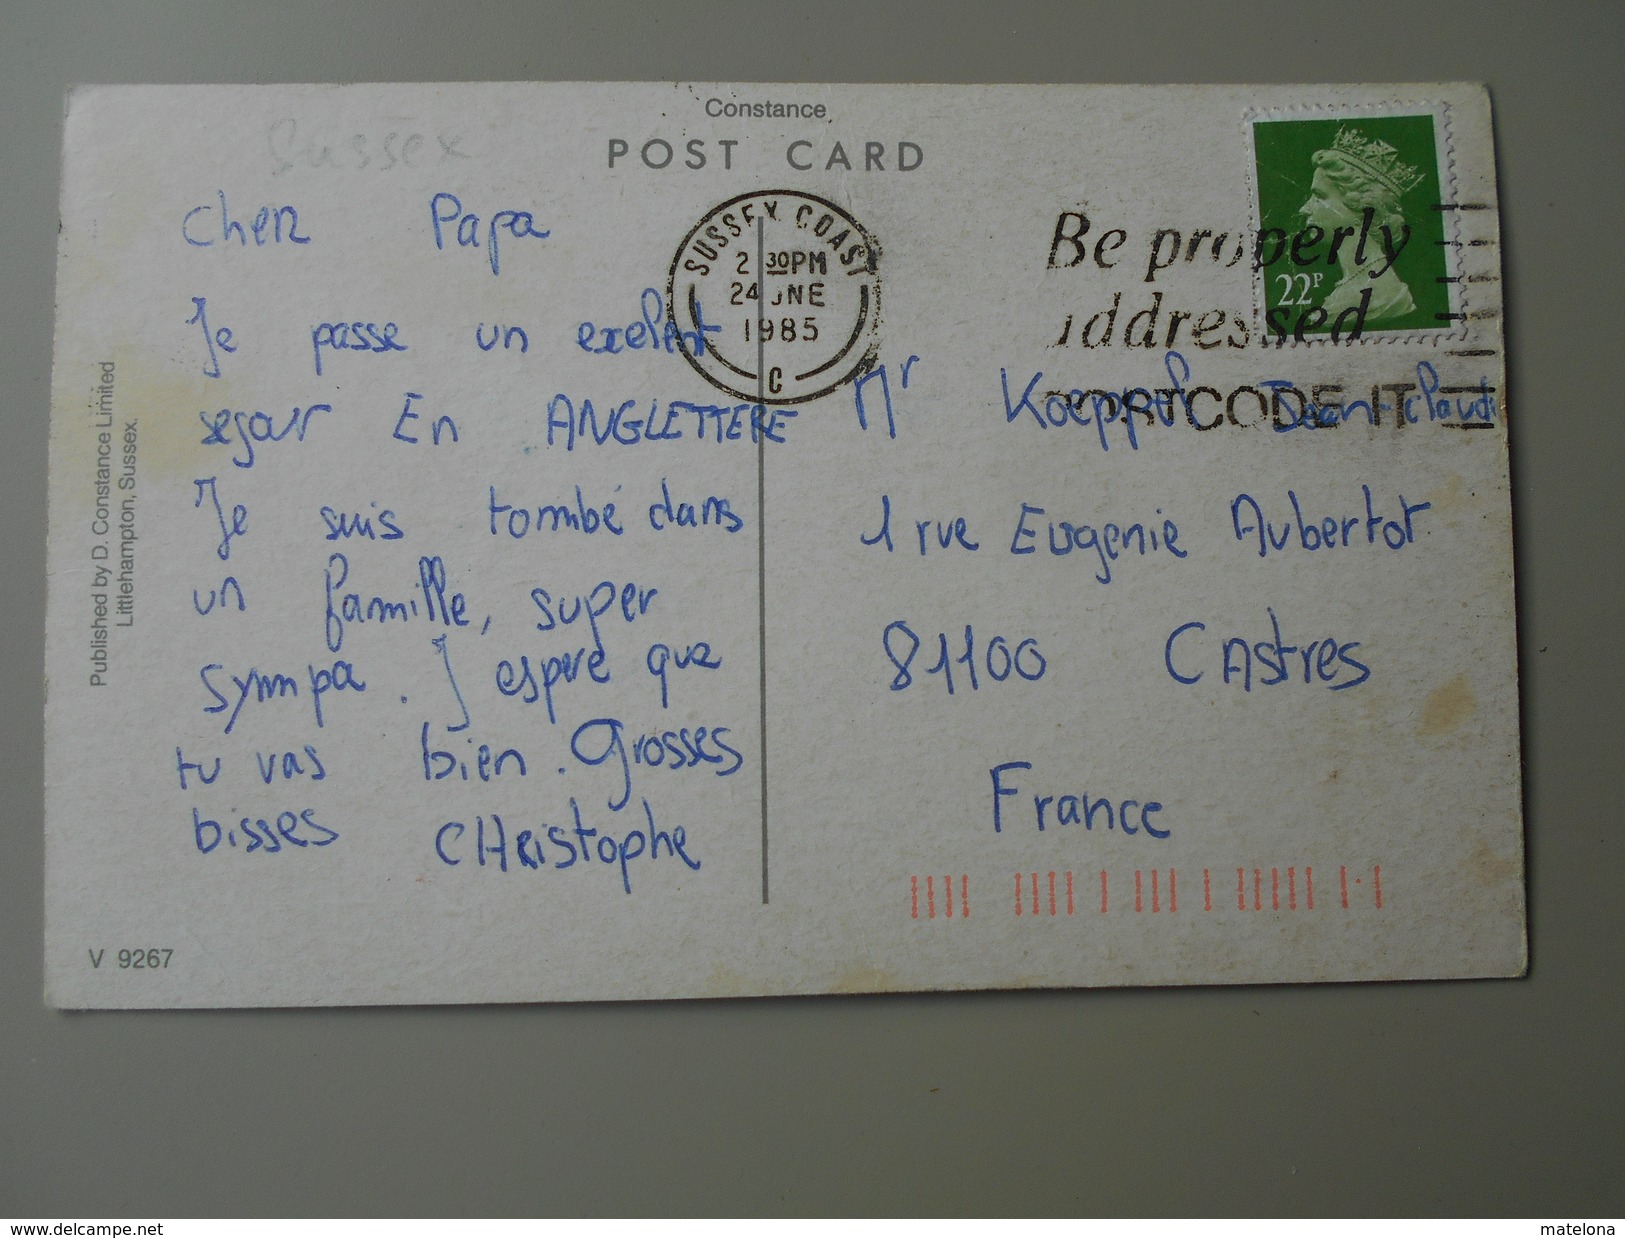 Constance
POST CARD
Sussex
SUSSEX COAST
2 30PM
24 JNE
1985
C
Be properly
addressed
POSTCODE IT
22P
Cher Papa
Je passe un exelent
segour En ANGLETTERE
Je suis tombé dans
un famille, super
sympa. J espere que
tu vas bien. Grosses
bisses CHRistophe
Mr Koeppel Jean-claude
1 rue Eugenie Aubertot
81100 CAstres
France
Published by D. Constance Limited
Littlehampton, Sussex.
V 9267
www.delcampe.net
matelona